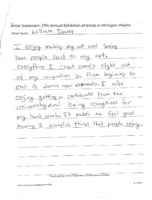 Artist Statement, 25th Annual Exhibition of Artists in Michigan Prisons
Artist Name: William Dewey
I Enjoy making my art and seeing
how people react to my art.
everything I create comes right out
of my imagination so from beginning to
end its always new experience. I also
enjoy getting a certificate from the
university and being recognized for
my hard work. It makes me feel good
knowing I accomplish things that people enjoy.